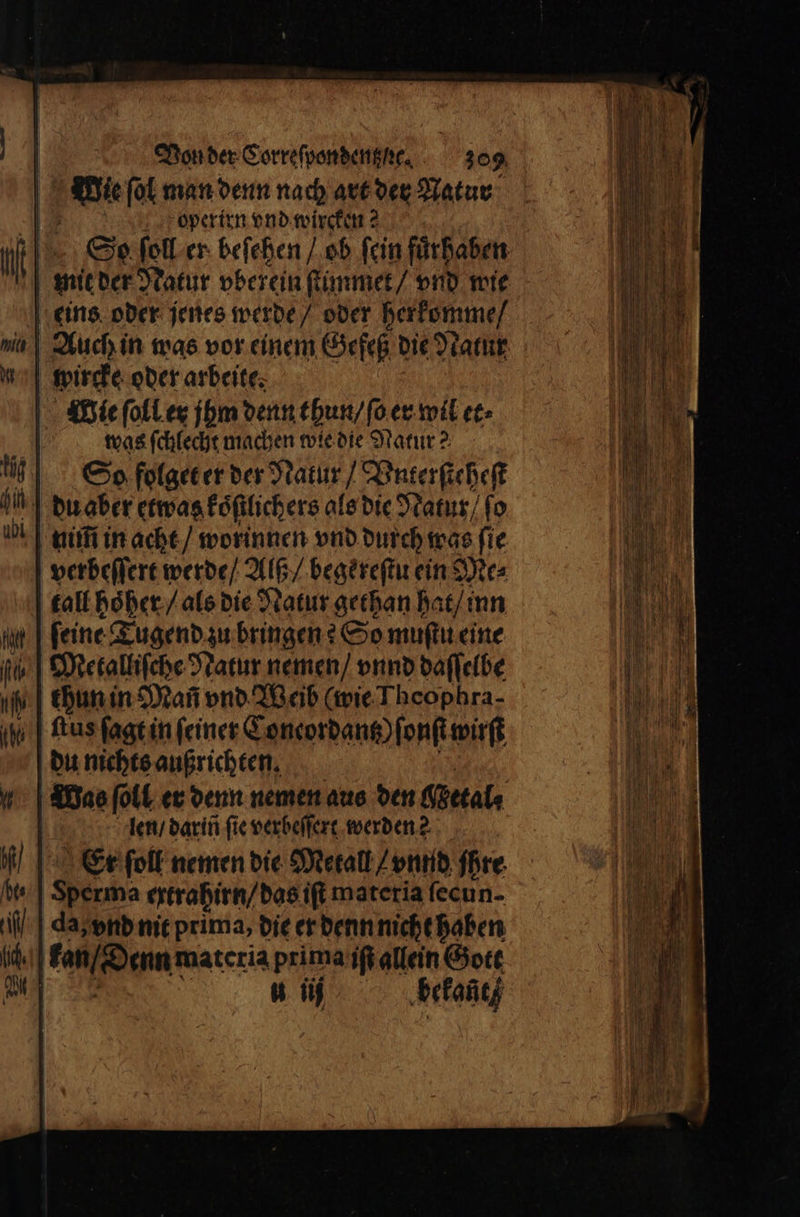 Von der Correſpondentz/ꝛc. 309
Wie ſol man denn nach art der Natur
operirn vnd wircken?
So ſoll er beſehen / ob ſein fuͤrhaben
mit der Natur vberein ſtimmet / vnd wie
eins oder jenes werde / oder herkomme/
Auch in was vor einem Gefeß die Natur
wircke oder arbeite.
Wie ſoll er jhm denn thun/ſo er wil et-
was ſchlecht machen wie die Natur?
So folget er der Natur / Vnterſteheſt
du aber etwas koͤſtlichers als die Natur/ ſo
nim̃ in acht / worinnen vnd durch was ſie
verbeſſert werde/ Alß / begereſtu ein Me-
tall hoͤher / als die Natur gethan hat/ inn
ſeine Tugend zu bringen? So muſtu eine
Metalliſche Natur nemen/ vnnd daſſelbe
thun in Mañ vnd Weib (wie Theophra-
ſtus ſagt in ſeiner Concordantz) ſonſt wirſt
du nichts außrichten.
Was ſoll er denn nemen aus den Metal-
len/ dariñ ſie verbeſſert werden?
Er ſoll nemen die Metall / vnnd jhre
Sperma extrahirn/das iſt materia ſecun-
da, vnd nit prima, die er denn nicht haben
kan/Denn materia prima iſt allein Gott
u iij bekañt/